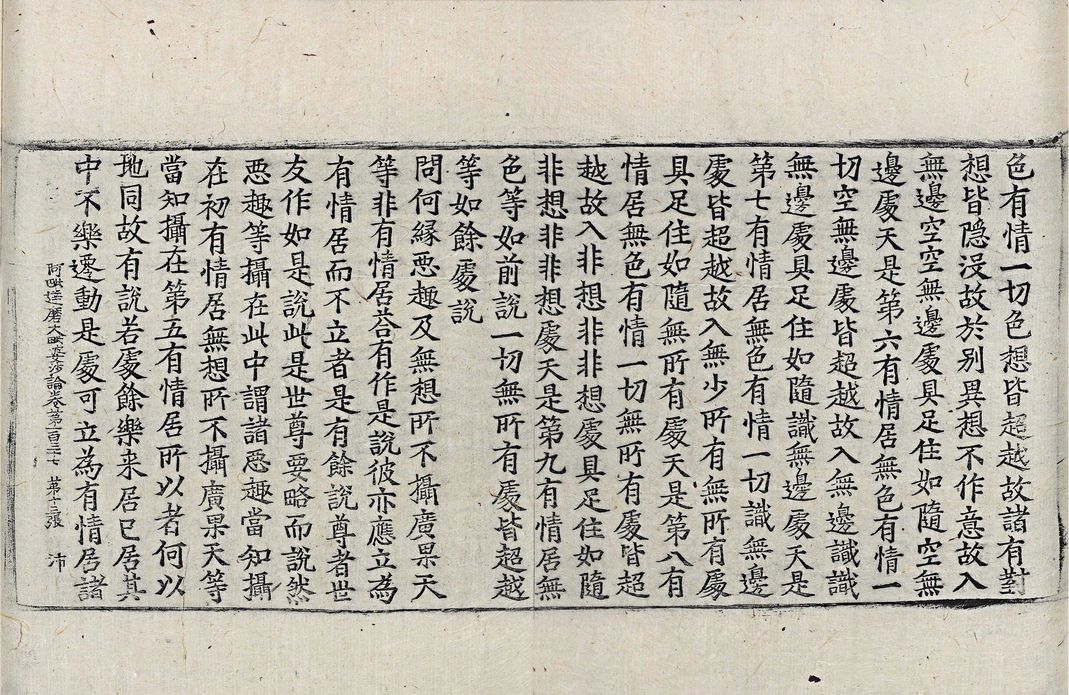 色有情一切色想皆超越故諸有對
想皆隐没故於别異想不作意故入
無邊空空無邊處具足住如隨空無
邊處天是第六有情居無色有情一
切空無邊處皆超越故入無邊識識
無邊處具足住如隨識無邊處天是
第七有情居無色有情一切識無邊
處皆超越故入無少所有無所有處
具足住如隨無所有處天是第八有
情居無色有情一切無所有處皆超
越故入非想非非想處具足住如隨
非想非非想處天是第九有情居無
色等如前說一切無所有處皆超越
等如餘處說
問何緣惡趣及無想所不攝廣果天
等非有情居荅有作是說彼亦應立為
有情居而不立者是有餘說尊者世
友作如是說此是世尊要略而說然
惡趣等攝在此中謂諸惡趣當知攝
在初有情居無想所不攝廣果天等
當知攝在第五有情居所以者何以
地同故有說若處餘樂来居已居其
中不樂遷動是處可立為有情居諸
阿毗達磨大毗婆沙論卷第一百三七 第十三張 沛